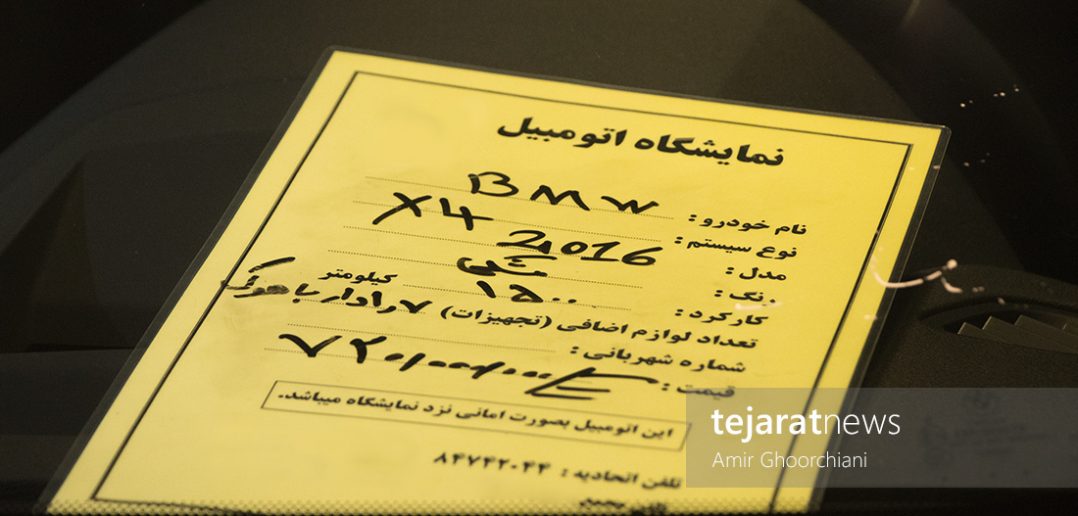 نمایشگاه اتومبیل
نام خودرو : BMW
نوع سیستم : X4
مدل : 2016
رنگ : مشکی
کارکرد : ۱۵۰۰ کیلومتر
تعداد لوازم اضافی (تجهیزات) ۷ رادار با هوک
شماره شهربانی :
قیمت :
این اتومبیل بصورت امانی نزد نمایشگاه میباشد.
تلفن اتحادیه : ۸۴۷۴۲۰۴۴
tejaratnews
Amir Ghoorchiani